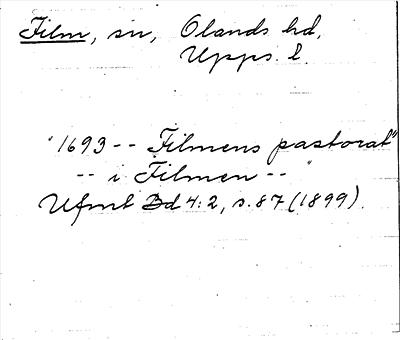 Film, sn, Olands hd,
Upps. l.
"1693 -- Filmens pastorat"
-- i Filmen -- "
Ufmt Bd 4:2, s. 87 (1899).